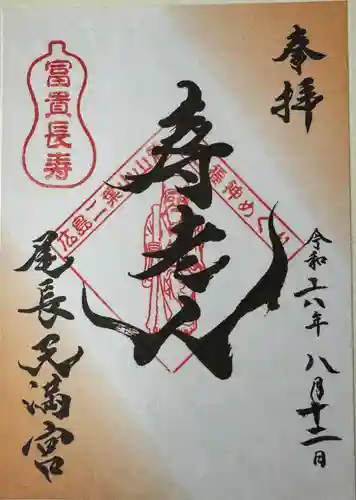 奉拝
令和六年八月十二日
寿老人
広島二葉山山
福神めぐり
富貴長寿
尾長天満宮